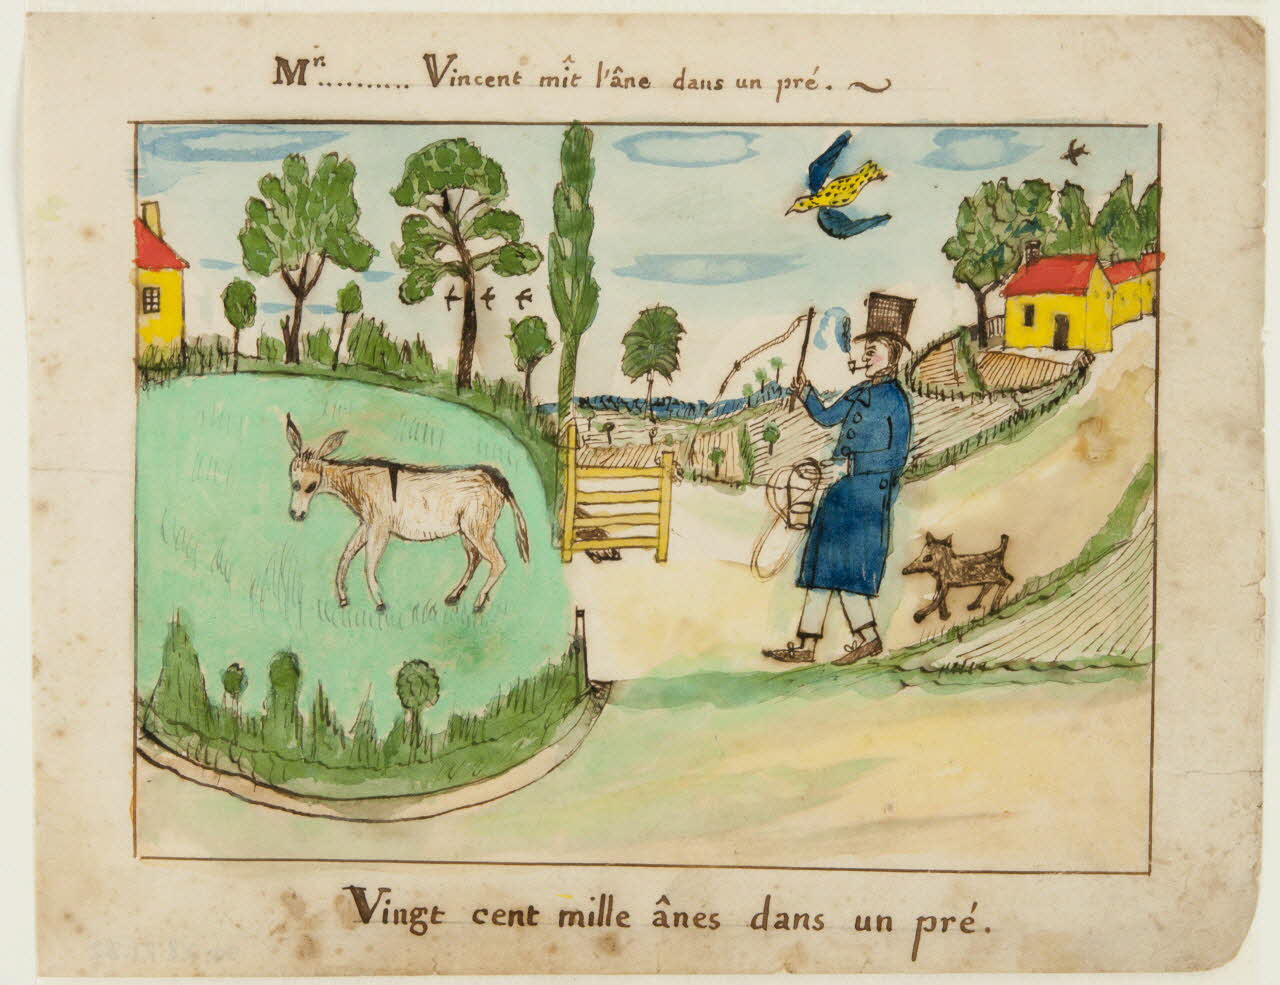 Mr.......... Vincent mît l'âne dans un pré.
Vingt cent mille ânes dans un pré.